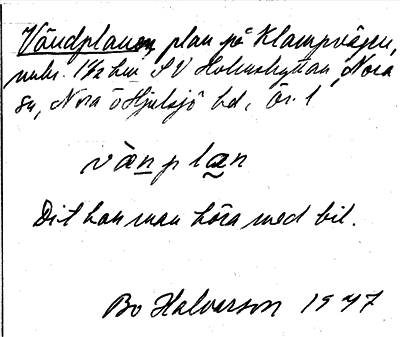 Vändplanen, plan på Klampvägen,
omkr. 1½ km SV Holmshyttan, Nora
sn, Nora o Hjulsjö bd, Ör. l
vä̀n plæn
Dit kan man köra med bil.
Bo Halvarson 1947